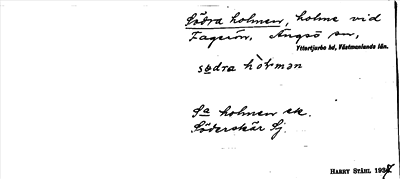 Södra holmen, holme vid
Fagerön, Ängsö sn,
Yttertjurbo hd, Västmanlands län.
södra hòlmən
Sa holmen ek.
Söderskär Sj.
HARRY STÅHL 1937.